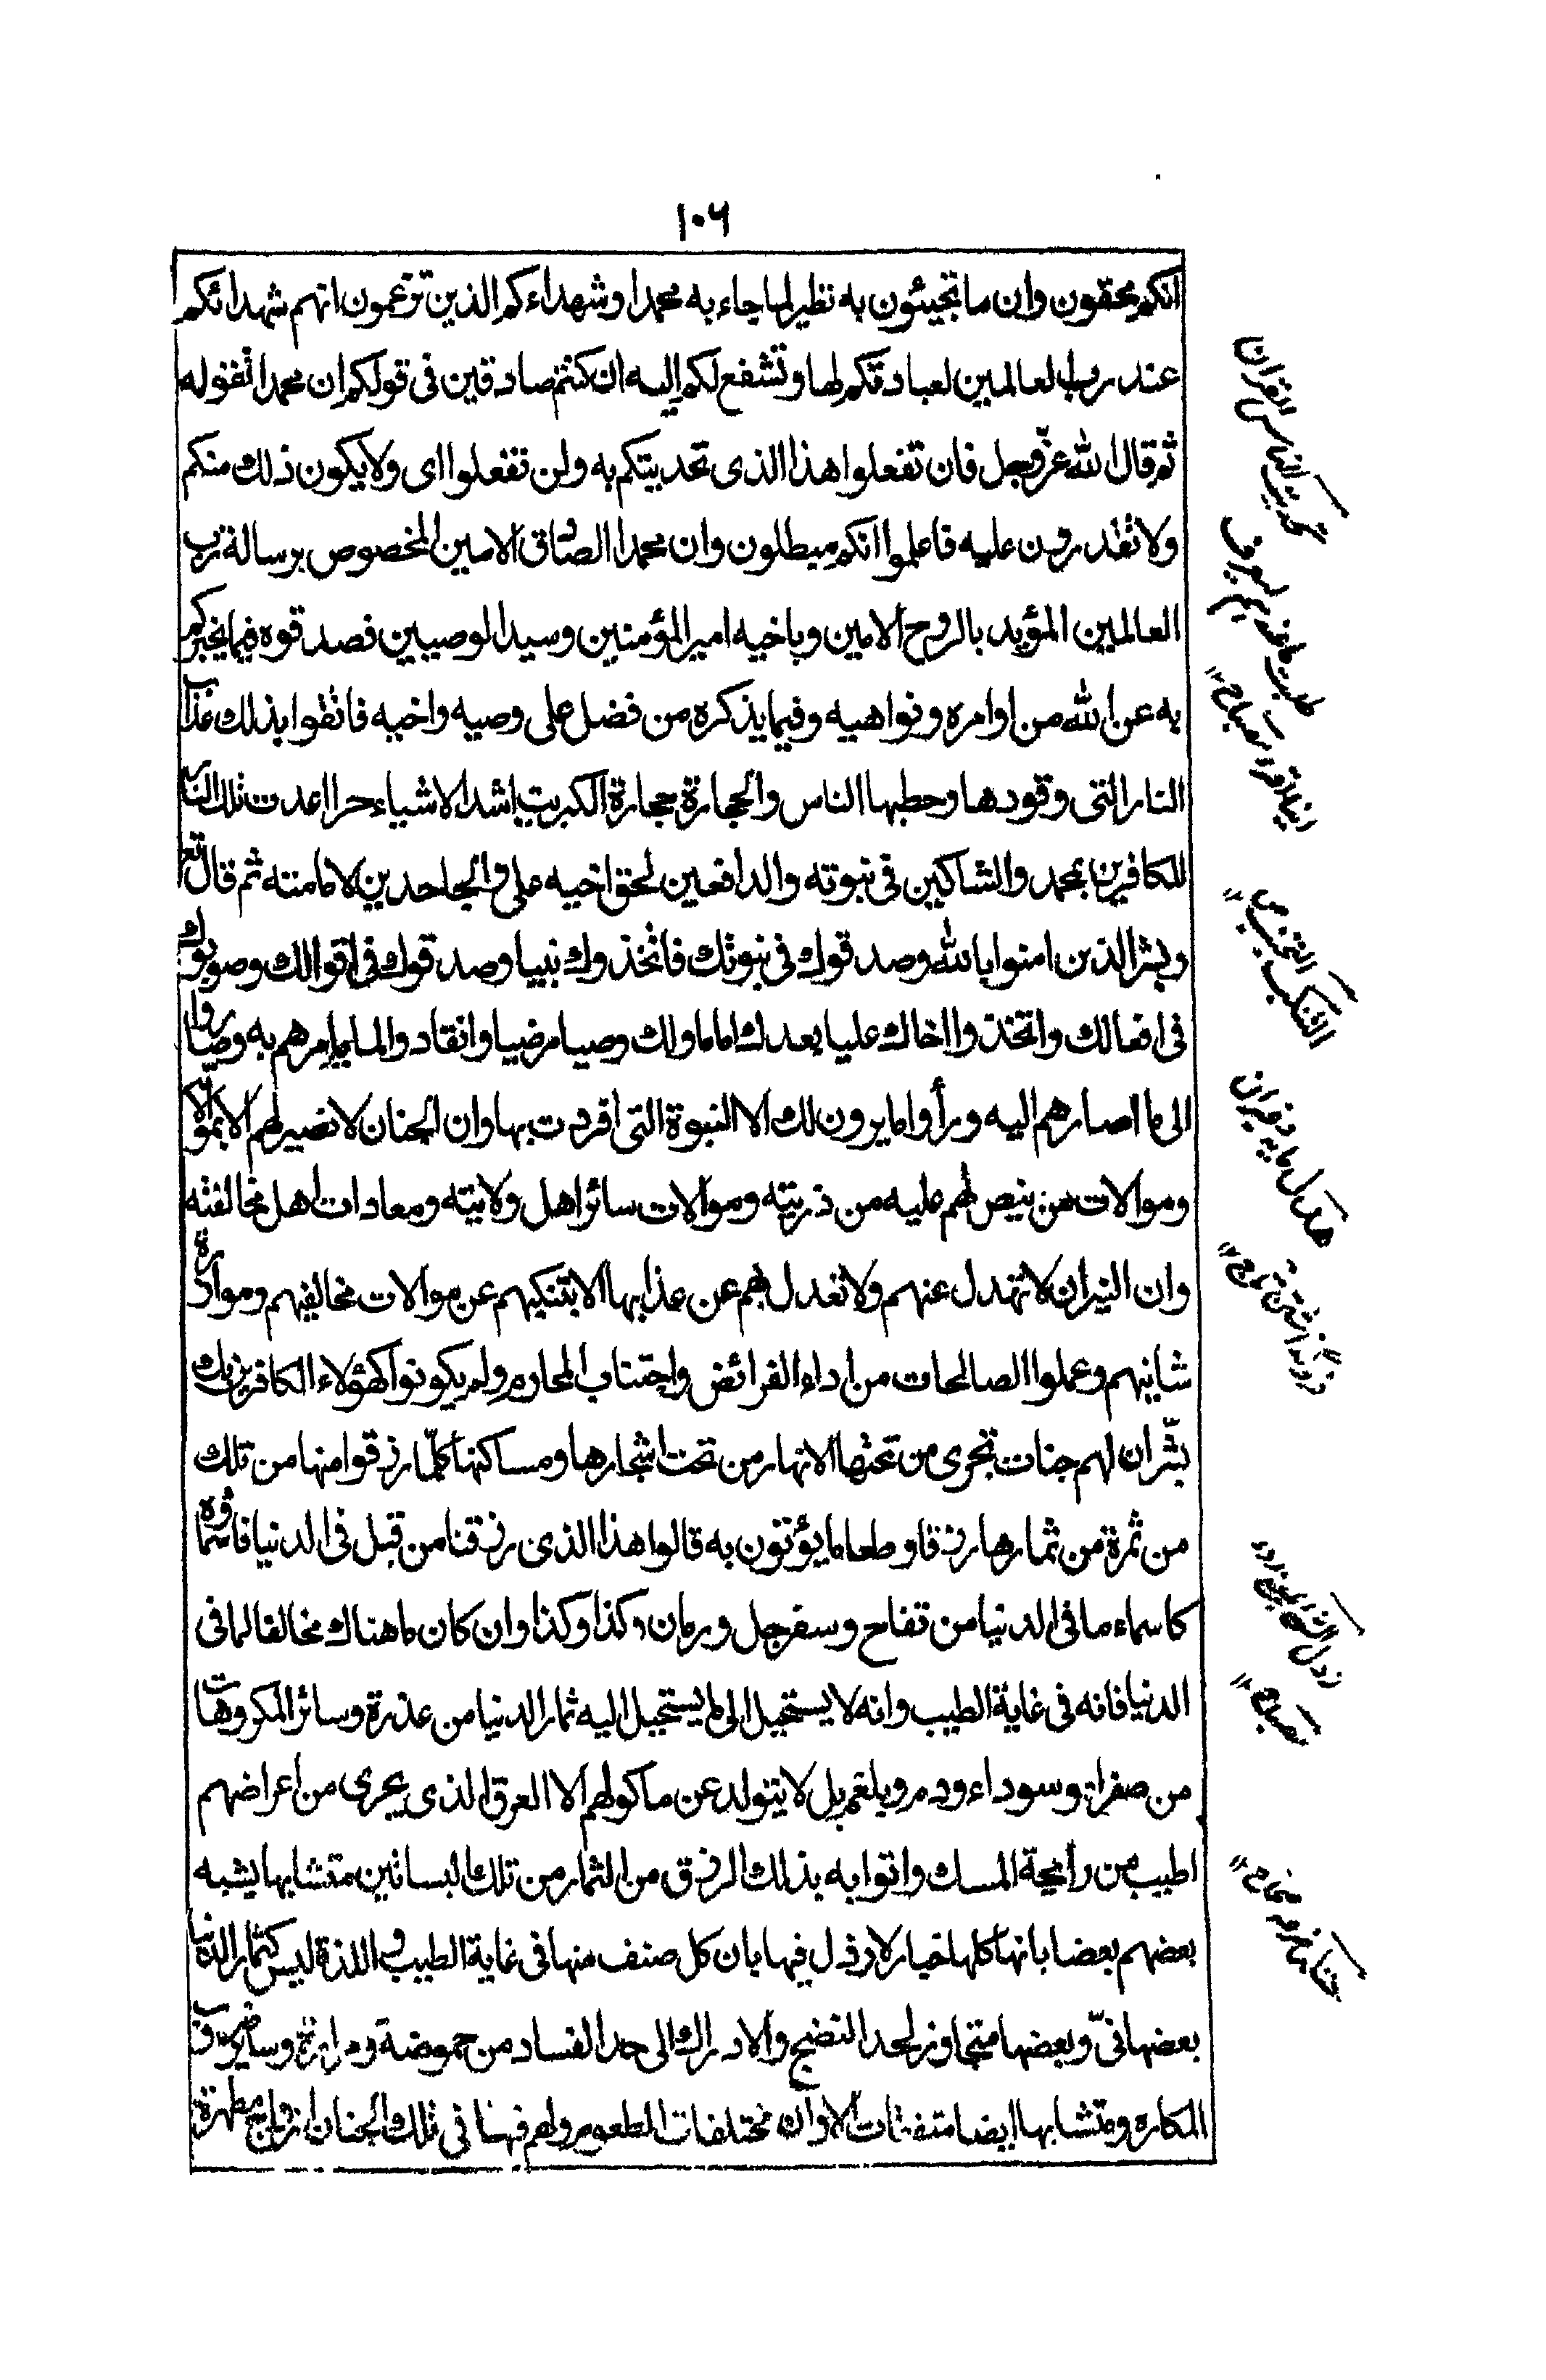 ١٠٦
انكم محقون وان ما تجيئون به نظير لما جاء به محمدا وشهداءكم الذين تزعمون انهم شهدائكم
عند رب العالمين لعبادتكم لها وتشفع لكم اليه ان كنتم صادقين فى قولكم ان محمدا تقوله
ثم قال الله عزّ وجل فان تفعلوا هذا الذى تحديتكم به ولن تفعلوا اى ولا يكون ذلك منكم
ولا تقدرون عليه فاعلموا انكم مبطلون وان محمدا الصادق الامين المخصوص برسالة رب
العالمين المؤيد بالروح الامين وباخيه امير المؤمنين وسيد الوصيين فصدقوه فيما يخبركم
به عن الله من اوامره ونواهيه وفيما يذكره من فضل على وصيه واخيه فاتقوا بذلك عذاب
النار التى وقودها وحطبها الناس والحجارة حجارة الكبريت اشد الاشياء حرا اعدت تلك النار
للكافرين بمحمد والشاكين فى نبوته والدافعين لحق اخيه على والجاحدين لامامته ثم قال تع
وبشر الذين امنوا بالله وصدقوك فى نبوتك فاتخذوك نبيا وصدقوك فى اقوالك وصوبوك
فى افعالك واتخذوا اخاك عليا بعدك اماما ولك وصيا مرضيا وانقادوا لما يامرهم به وصاروا
الى ما اصارهم اليه وراوا ما يرون لك الا النبوة التى افردت بها وان الجنان لا تصير لهم الا بموالاته
وموالات من ينص لهم عليه من ذريته وموالات سائر اهل ولايته ومعادات اهل مخالفته
وان النيران لا تهدل عنهم ولا تعدل بهم عن عذابها الا بتنكبهم عن موالات مخالفيهم وموازرة
شانيهم وعملوا الصالحات من اداء الفرائض واجتناب المحارم ولم يكونوا كهؤلاء الكافرين بك
بشّر ان لهم جنات تجرى من تحتها الانهار من تحت اشجارها ومساكنها كلّما رزقوا منها من تلك
من ثمرة من ثمارها رزقا وطعاما يؤتون به قالوا هذا الذى رزقنا من قبل فى الدنيا فاسماؤه
كاسماء ما فى الدنيا من تفاح وسفرجل ورمان وكذا وكذا وان كان ما هناك مخالفا لما فى
الدنيا فانه فى غاية الطيب وانه لا يستحيل الى ما يستحيل اليه ثمار الدنيا من عذرة وسائر المكروهات
من صفراء وسوداء ودم وبلغم بل لا يتولد عن ماكولهم الا العرق الذى يجرى من اعراضهم
اطيب من رائحة المسك واتوا به بذلك الرزق من الثمار من تلك البساتين متشابها يشبه
بعضهم بعضا بانها كلها خيار لا رذل فيها بان كل صنف منها فى غاية الطيب واللذة ليس كثمار الدنيا
بعضها نىّ وبعضها متجاوز لحد النضج والادراك الى حد الفساد من حموضة ومرارة وسائر ضروب
المكاره ومتشابها ايضا متفقات الالوان مختلفات الطعوم ولهم فيها فى تلك الجنان ازواج مطهرة
التنكب التجنب